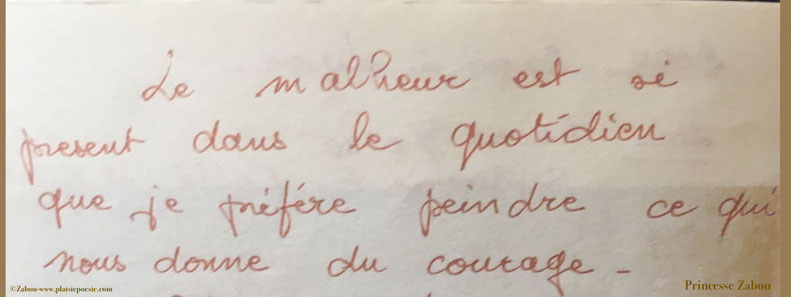 Le malheur est si
present dans le quotidien
que je préfére peindre ce qui
nous donne du courage -
©Zabou-www.platsiepoesie.com
Princesse Zabou